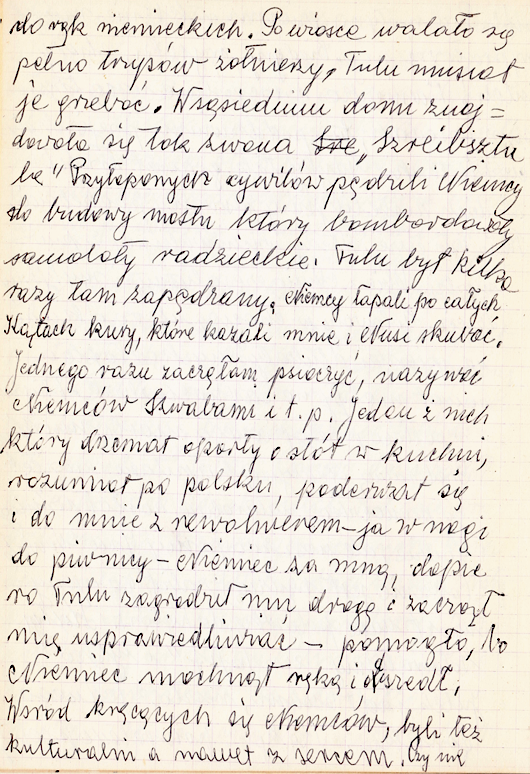 do rąk niemieckich. Po wiosce walało się
pełno trupów żołnierzy, Tulu musiał
je grzebać. W sąsiednim domu znaj=
dowała się tak zwana „Szreibsztu
ba" Przyłapanych cywilów pędzili Niemcy
do budowy mostu który bombardowały
samoloty radzieckie. Tulu był kilka
razy tam zapędzany. Niemcy łapali po całych
Kątach kury, które kazali mnie i Nusi skubać.
Jednego razu zaczęłam psioczyć, nazywać
Niemców Szwabami i t.p. Jeden z nich
który drzemał oparty o stół w kuchni,
rozumiał po polsku, poderwał się
i do mnie z rewolwerem – ja w nogi
do piwnicy – Niemiec za mną, dopie
ro Tulu zagrodził mu drogę i zaczął
mię usprawiedliwiać – pomogło, bo
Niemiec machnął ręką i odszedł.
Wśród kręcących się Niemców, byli też
kulturalni a nawet z sercem. Czy nie